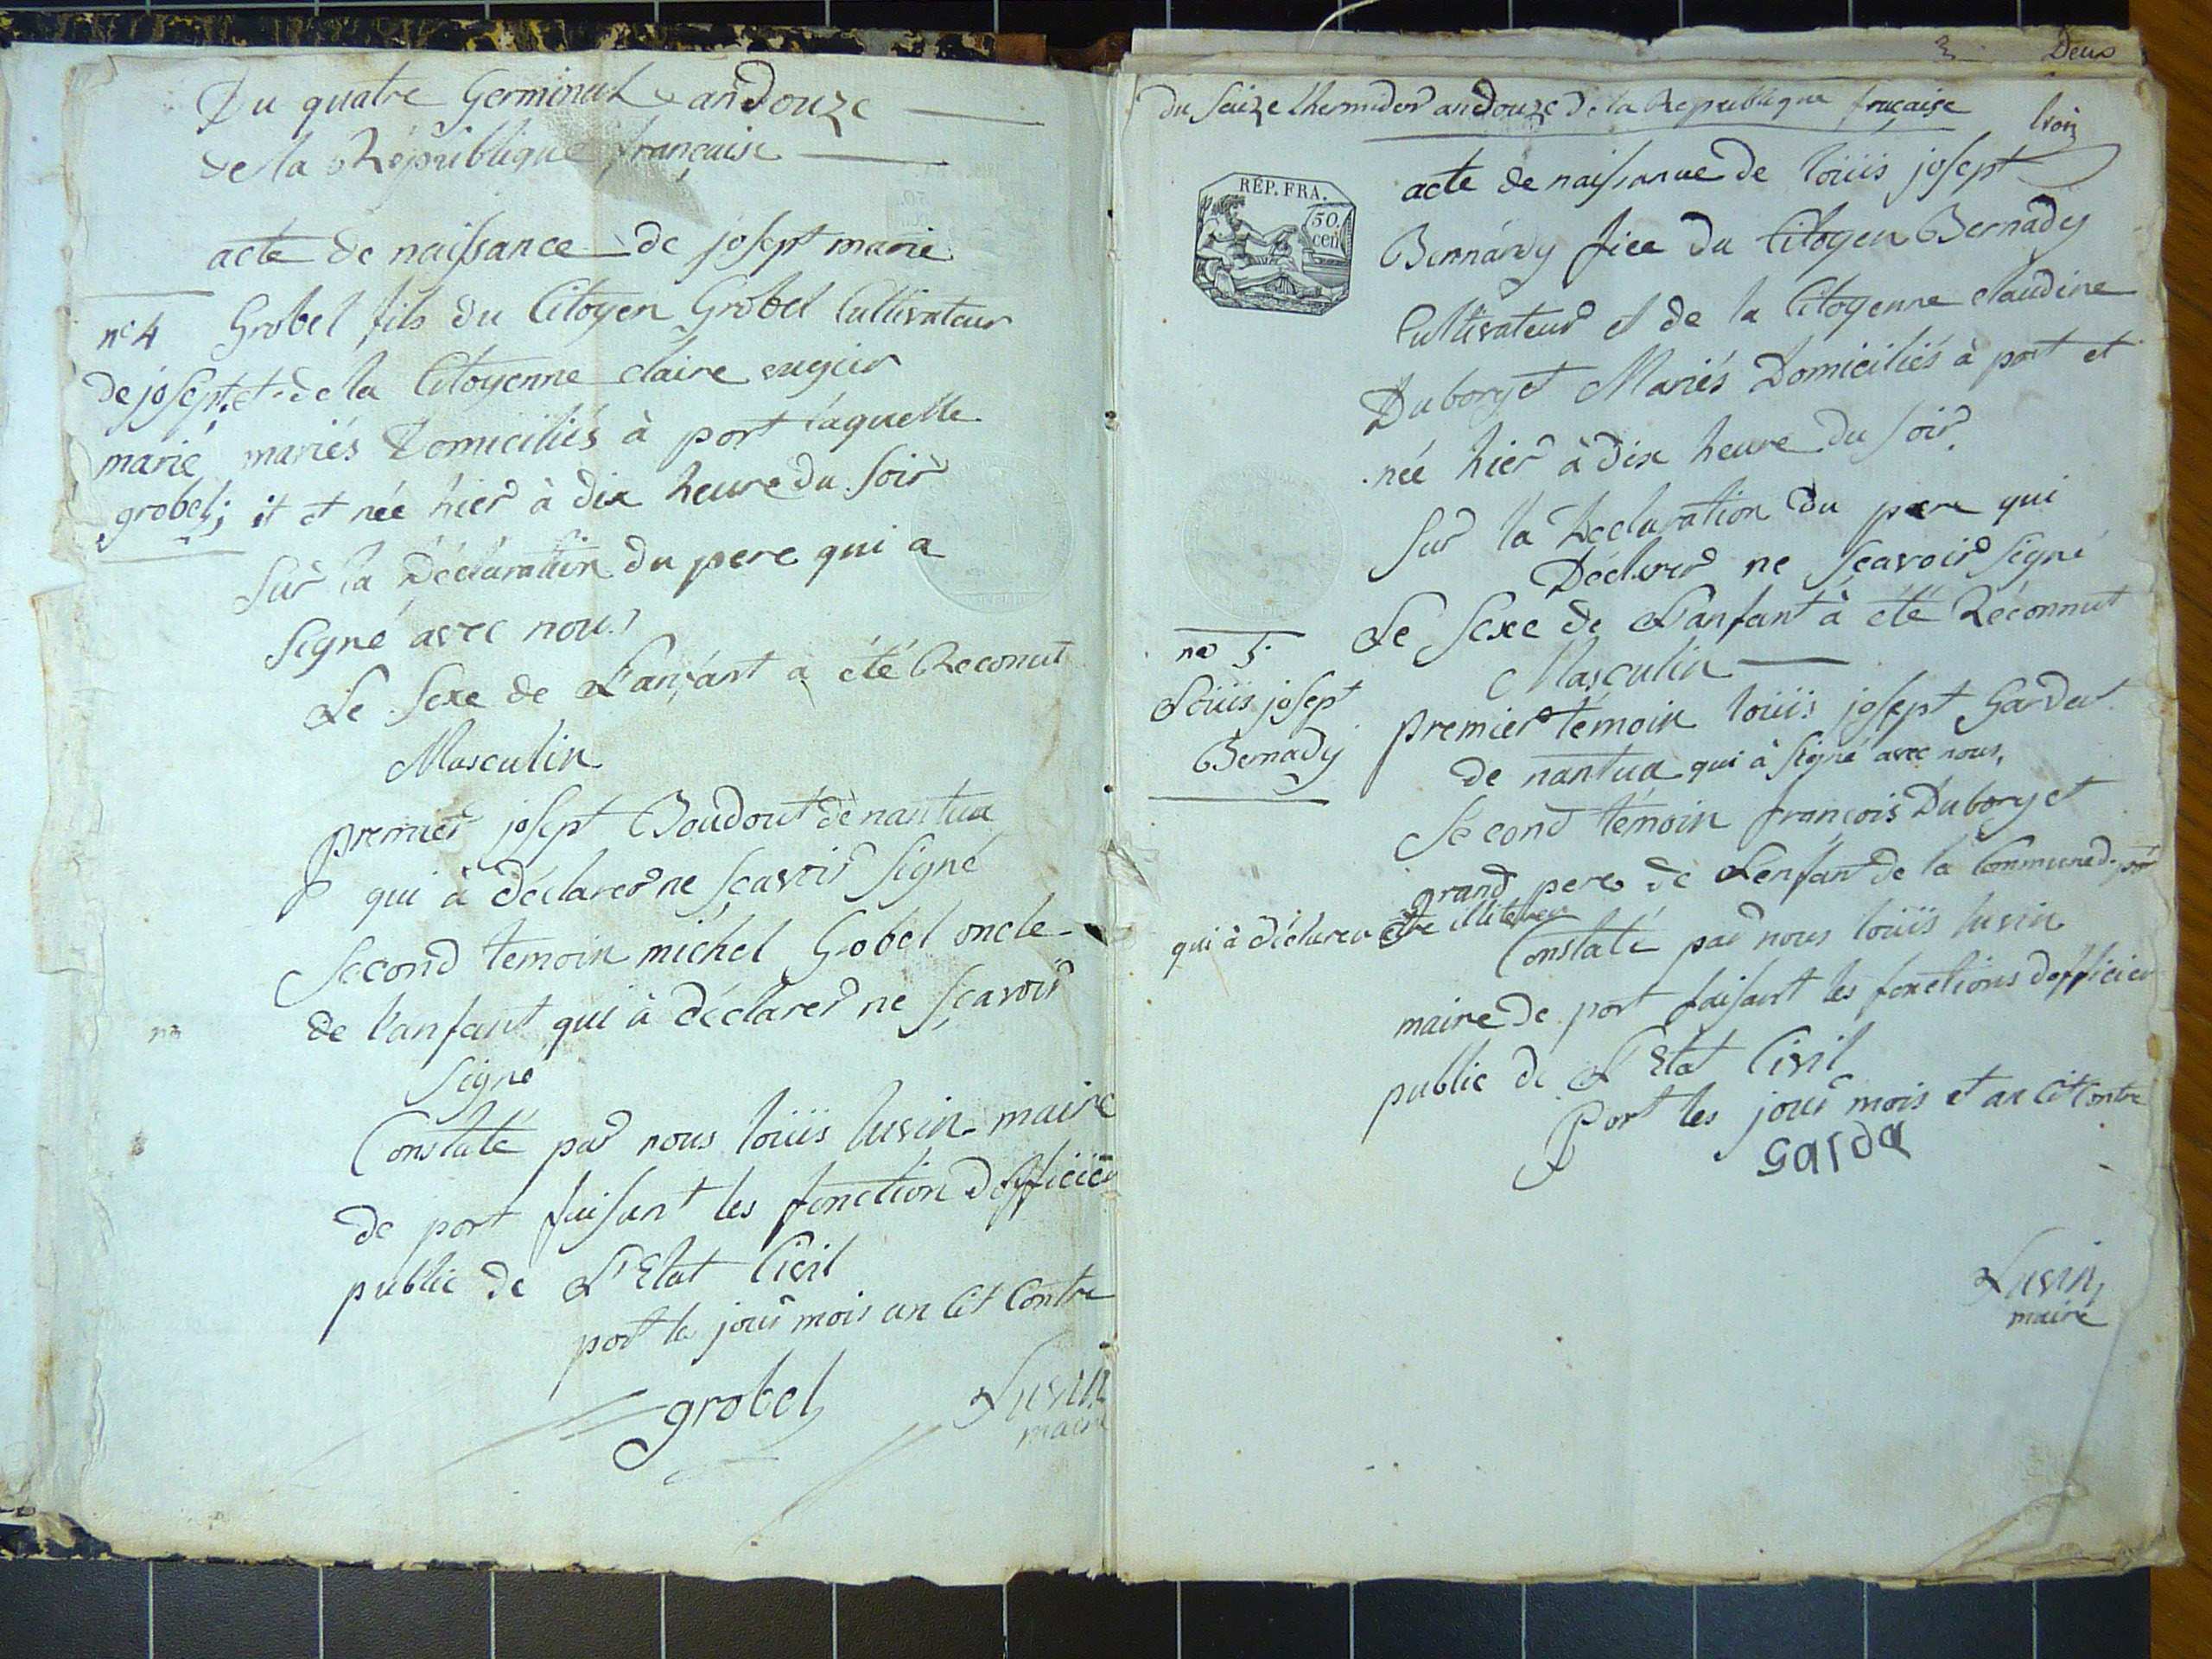 Du quatre Germinal andouze
de la République française
acte de naissance de josept marie
Grobel fils du Citoyen Grobel Cultivateur
et de la Citoyenne claire
mariés Domiciliés à port laquelle
it et née hier à dix heure du soir
Sur la Déclaration du pere qui a
signé avec nous
Le Sexe de L'anfant a été Reconut
Masculin
premier josept Boudout de nantua
qui à déclarer ne sçavoir signé
Second temoin michel Gobel oncle
de l'anfant qui à déclarer ne sçavoir
signé
Constaté par nous loüis luvin maire
de port faisant les fonction dofficier
public de L'Etat Civil
port le jour mois an Cit Contre
grobel
Luvin
maire
nº 4
de josept
marie
grobel;
Deux
trois
du seize thermidor andouze de la Republique fraçaise
RÉP. FRA.
50
cen
acte de naissance de loüis josept
Bernardy fice du Citoyen Bernady
Cultivateur et de la Citoyenne claudine
Duboryet Mariés Domiciliés à port et
née hier à dix heure du soir.
Sur la Declaration du pere qui
Déclarer ne sçavoir signé
Le Sexe de L'anfant à été Réconnut
Masculin
premier témoin loüis josept Gardet
de nantua qui à signé avec nous,
Sécond témoin françois Duboryet
grand pere de L'enfant de la Commune de port
qui à déclarer être illiterer
Constaté par nous loüis luvin
maire de port faisant les fonctions dofficier
public de L'Etat Civil
Port les jour mois et an Cit Contre
Garda
Luvin
maire
no 5.
Loüis josept
Bernady